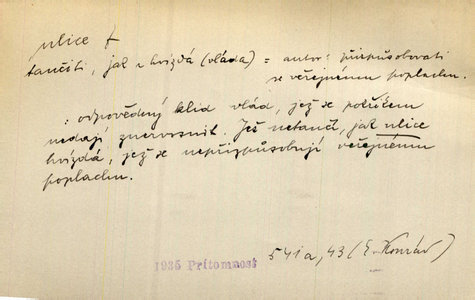 ulice f
tančiti, jak u hvízdá (vláda) = autor: přizpůsobovati
se veřejnému poplachu.
: odpovědný klid vlád, jež se potřeštěním
nedají znervosnit. Jež netančí, jak ulice
hvízdá, jež se nepřizpůsobují veřejnému
poplachu.
1935 Přítomnost 541a, 43 (E. Konrád)